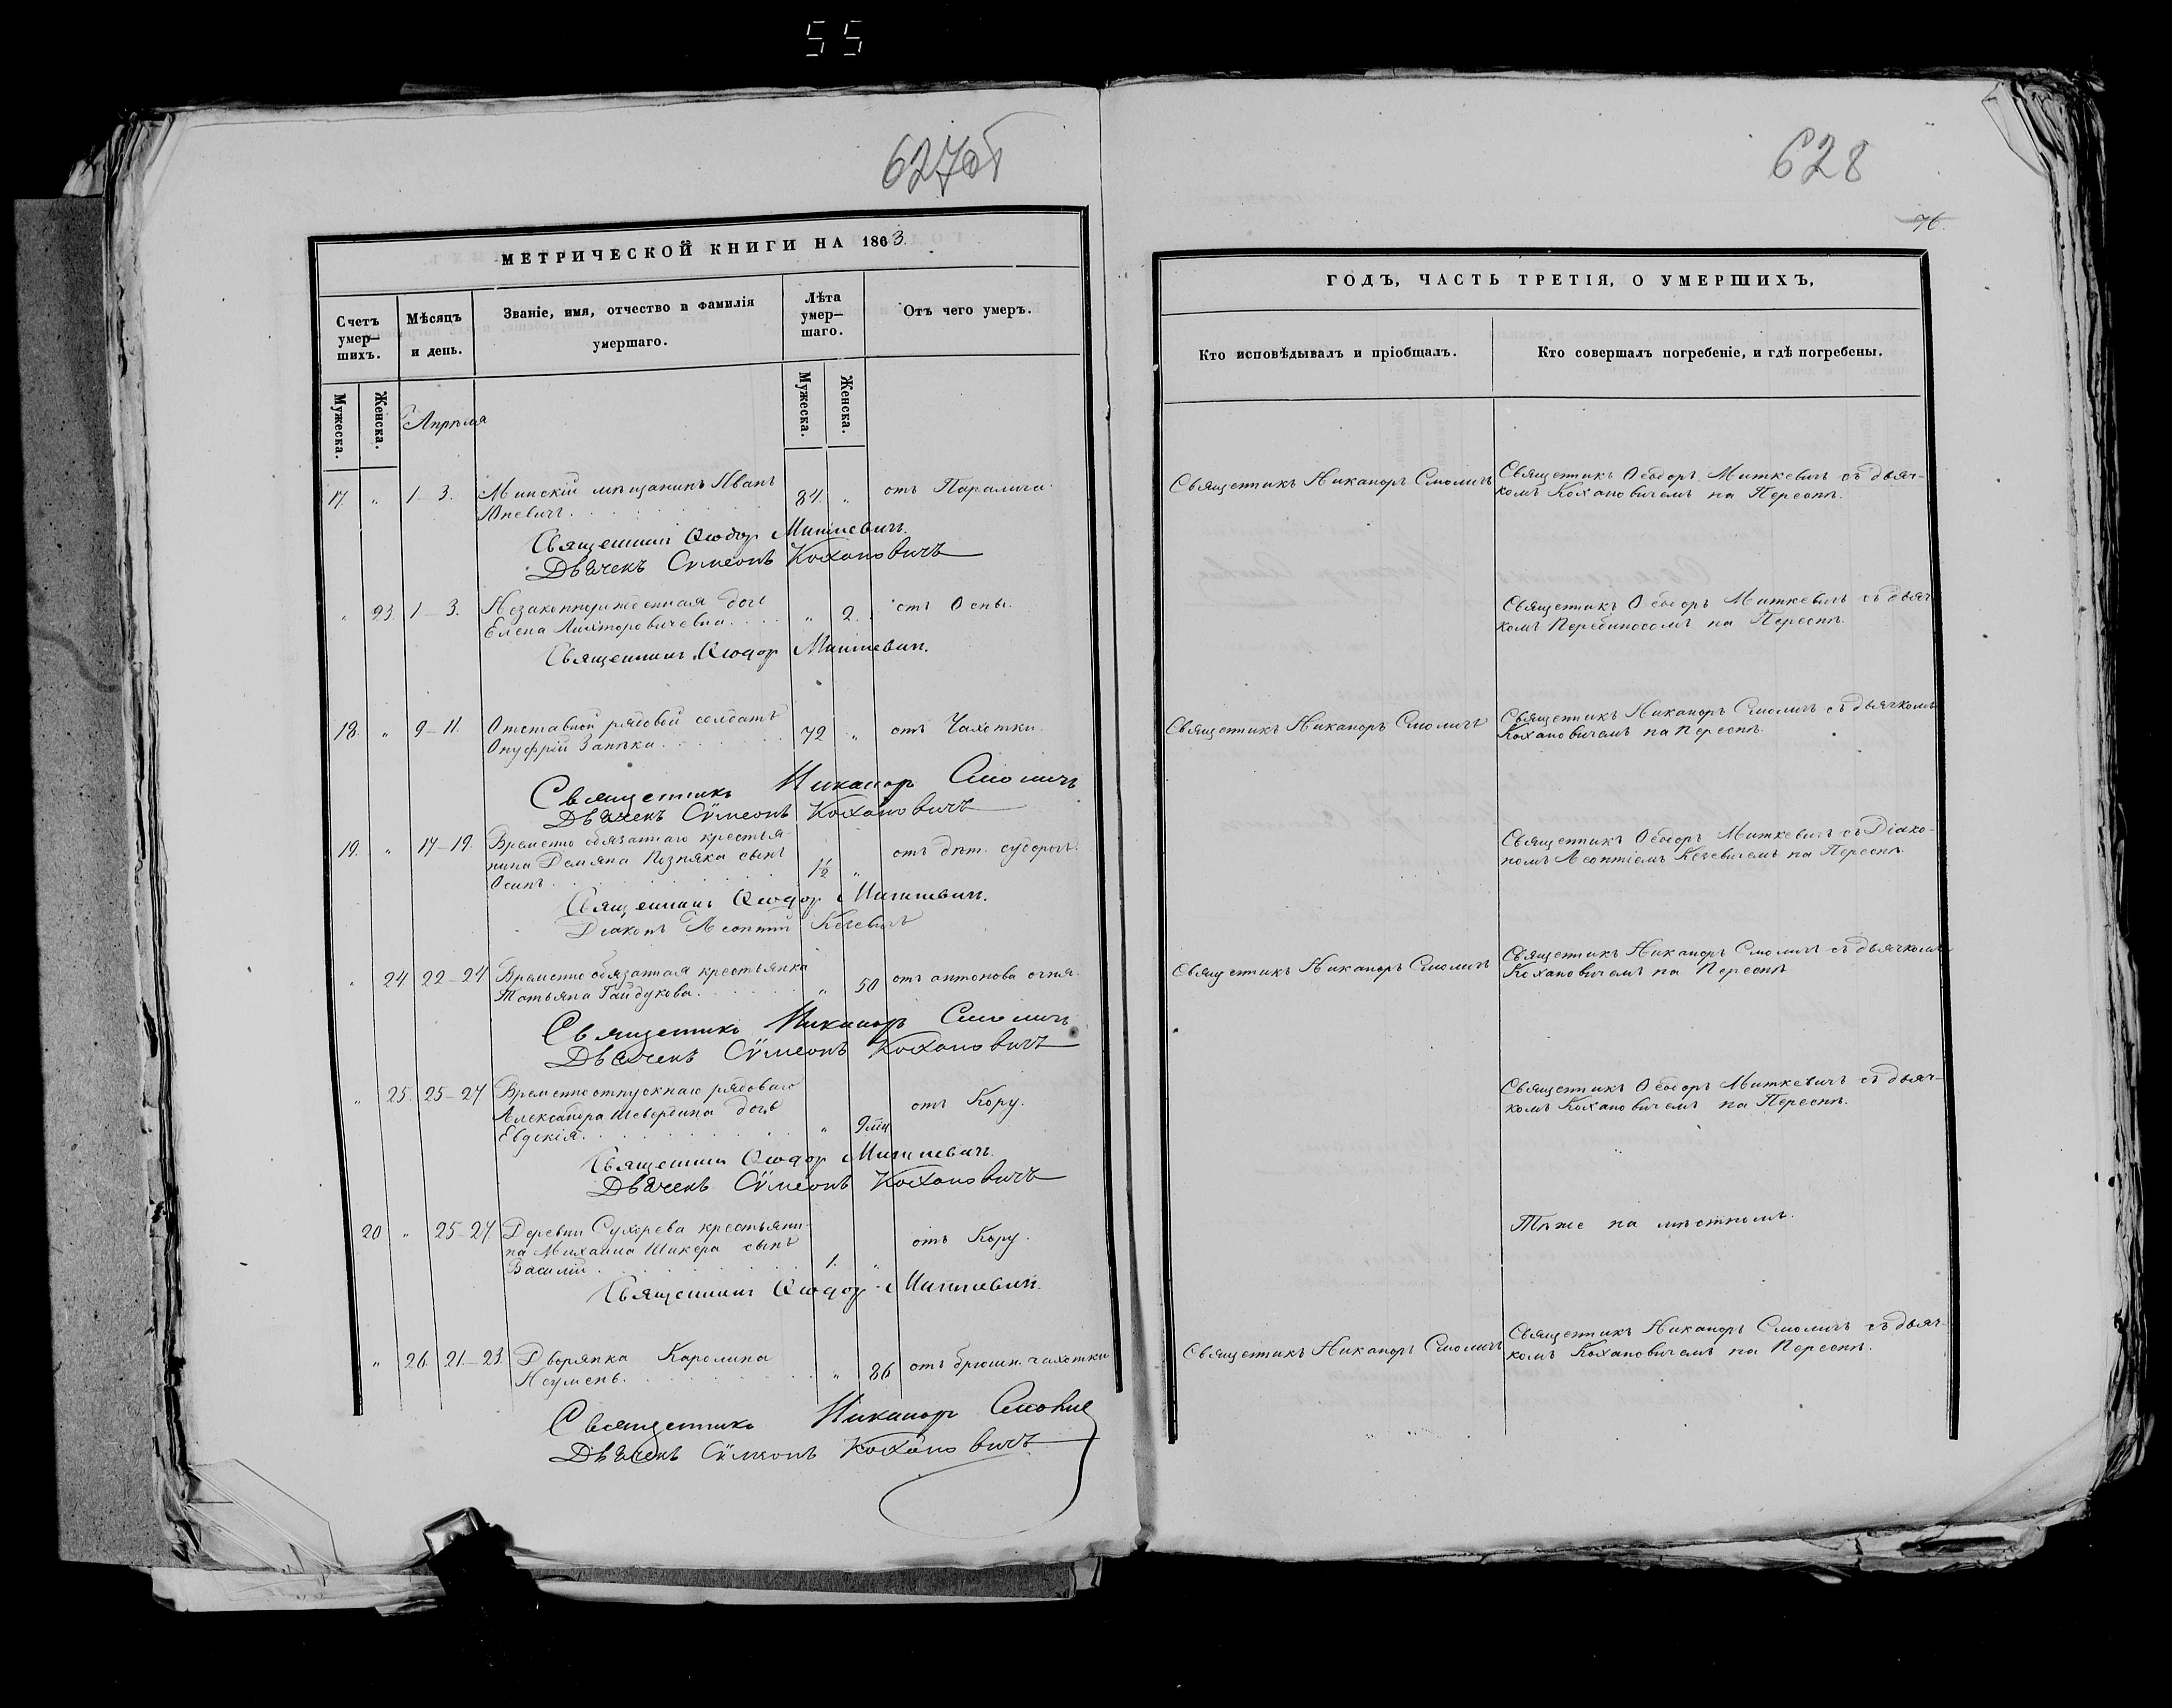 55
627об
628
76.
МЕТРИЧЕСКОЙ КНИГИ НА 1863.
Счетъ умер-шихъ.
Мѣсяцъ и день.
Званіе, имя, отчество и фамилія умершаго.
Лѣта умер-шаго.
Отъ чего умеръ.
Мужеска.
Женска.
Мужеска.
Женска.
Апрѣля
17. " 1-3. Минскій мѣщанинъ Иванъ 84. " отъ Паралича.
Юневичъ.
Священникъ Ѳеодоръ Миткевичъ.
Дьячекъ Сѵмеонъ Кохановичъ
" 23. 1-3. Незаконнорожденная дочь " 2. отъ Оспы.
Елена
Священникъ Ѳеодоръ Миткевичъ.
18. " 9-11. Отставной рядовой солдатъ 72 " отъ Чахотки.
Онуфрій Запѣка.
Священникъ Никаноръ Смоличъ
Дьячекъ Сѵмеонъ Кохановичъ
19. " 17-19. Временно обязаннаго крестья-
нина Демьяна Позняка сынъ 1½ " отъ дѣт. судорогъ.
Осипъ.
Священникъ Ѳеодоръ Миткевичъ.
Діаконъ Леонтій Кечевичъ
" 24 22-24 Временно обязанная крестьянка " 50 отъ антонова огня.
Татьяна Гайдукова.
Священникъ Никаноръ Смоличъ
Дьячекъ Сѵмеонъ Кохановичъ
" 25. 25-27 Временноотпускнаго рядоваго
Александра Шевердина дочь " 9 мѣц отъ Кору.
Евдокія.
Священникъ Ѳеодоръ Миткевичъ.
Дьячекъ Сѵмеонъ Кохановичъ
20 " 25-27. Деревни Сухорева крестьяни-
на Михаила Шикера сынъ 1. " отъ Кору.
Василій.
Священникъ Ѳеодоръ Миткевичъ.
" 26. 21-23. Дворянка Каролина " 86 отъ брюшн. чахотки
Неумень.
Священникъ Никаноръ Смоличъ
Дьячекъ Сѵмеонъ Кохановичъ
ГОДЪ, ЧАСТЬ ТРЕТІЯ, О УМЕРШИХЪ,
Кто исповѣдывалъ и пріобщалъ.
Кто совершалъ погребеніе, и гдѣ погребены.
Священникъ Никаноръ Смоличъ
Священникъ Ѳеодоръ Миткевичъ съ дьяч-
комъ Кохановичемъ на Переспѣ.
Священникъ Ѳеодоръ Миткевичъ съ дьяч-
комъ на Переспѣ.
Священникъ Никаноръ Смоличъ
Священникъ Никаноръ Смоличъ съ дьячкомъ
Кохановичемъ на Переспѣ.
Священникъ Ѳеодоръ Миткевичъ съ Діако-
номъ Леонтіемъ Кечевичемъ на Переспѣ.
Священникъ Никаноръ Смоличъ
Священникъ Никаноръ Смоличъ съ дьячкомъ
Кохановичемъ на Переспѣ
Священникъ Ѳеодоръ Миткевичъ съ дьяч-
комъ Кохановичемъ на Переспѣ.
Тѣже на мѣстномъ.
Священникъ Никаноръ Смоличъ
Священникъ Никаноръ Смоличъ съ дьяч-
комъ Кохановичемъ на Переспѣ.